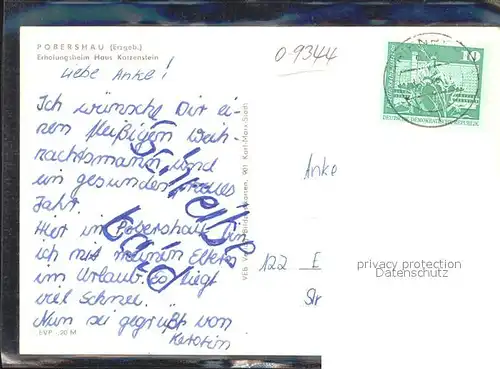 POBERSHAU (Erzgeb.)
Erholungsheim Haus Katzenstein
0-9344
10
DEUTSCHE DEMOKRATISCHE REPUBLIK
Liebe Anke!
Ich wünsche Dir ei-
nen fleißigen Weih-
nachtsmann und
ein gesundes neues
Jahr.
Hier in Pobershau bin
ich mit meinen Eltern
im Urlaub. Es liegt
viel Schnee.
Nun sei gegrüßt von
Katrin
Schreibe
bald
EVP -,20 M
VEB Bild 901 Karl-Marx-Stadt
Anke
122 E
Str
privacy protection
Datenschutz